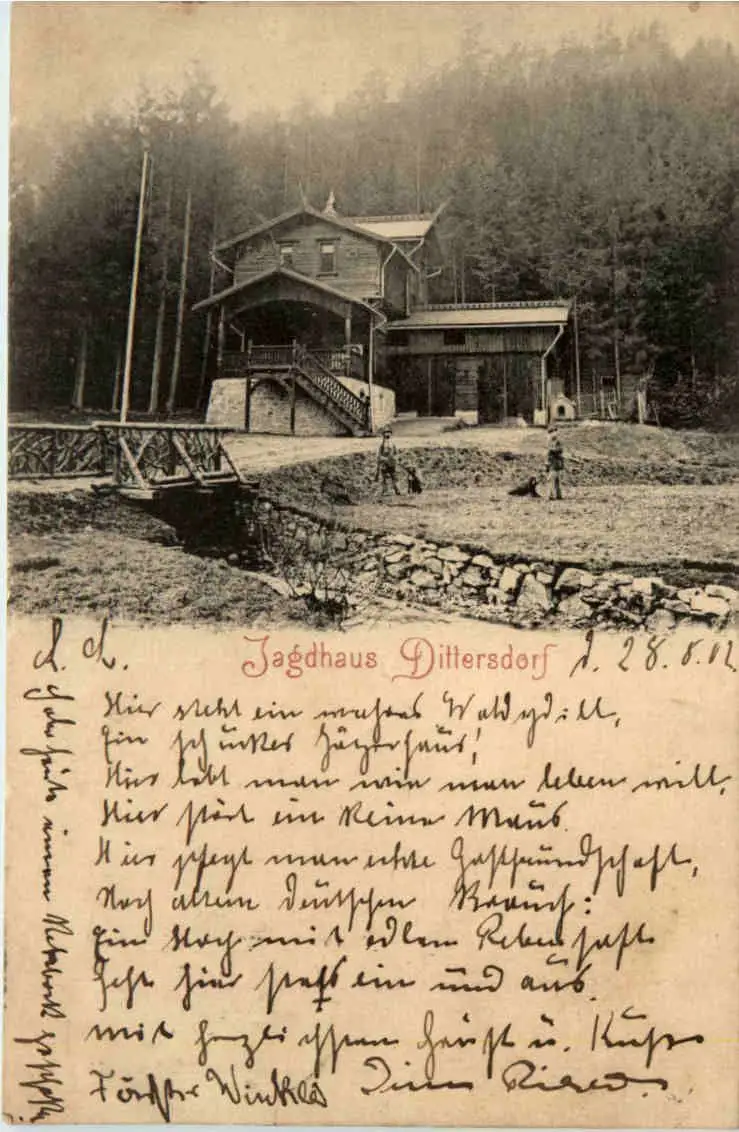 L. L.
Jagdhaus Dittersdorf d. 28.8.02.
Hier steht ein wahres Waldydill,
Ein schückes Jägerhaus!
Hier lebt man wie man leben will,
Hier stört ein keine Maus.
Hier pflegt man echte Gastfreundschaft,
Nach altem deutschen Brauch:
Ein Hoch mit edlem Rebensaft
Geht hier stets ein und aus.
mit herzlichsten Gruß u. Kuss
Förster Winkle Deine
Habe heute einen Rehbock